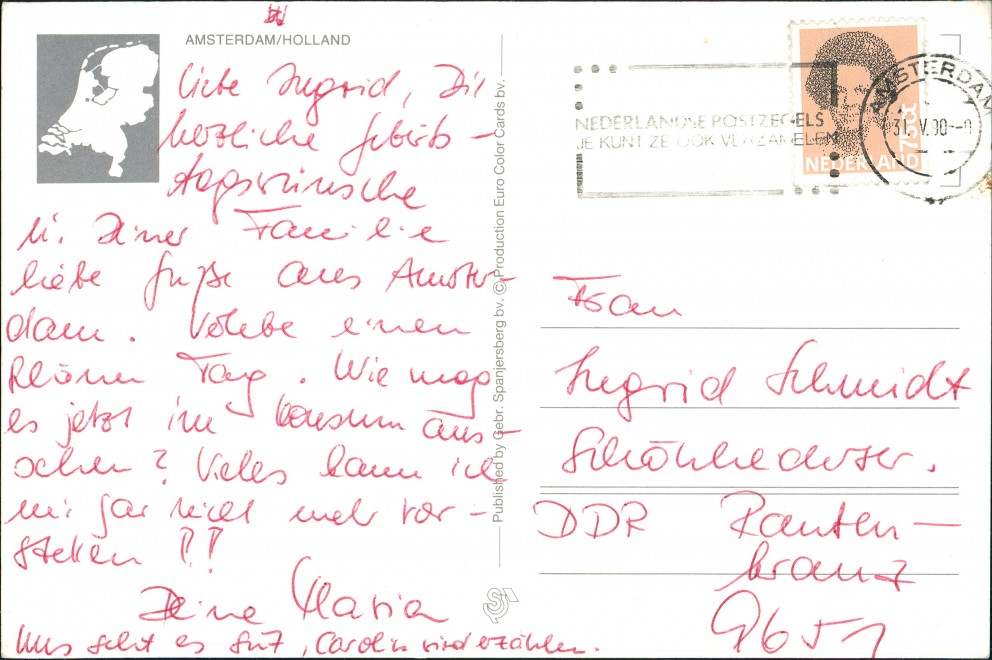 AMSTERDAM/HOLLAND
Liebe Ingrid, Dir
herzliche Geburts-
tagswünsche
u. Deiner Familie
liebe Grüße aus Amster-
dam. Verlebe einen
schönen Tag. Wie mag
es jetzt im Konsum aus-
sehen? Vieles kann ich
mir gar nicht mehr vor-
stellen!!
Deine Maria
Uns geht es gut, Carolin wird erzählen.
Published by Gebr. Spanjersberg bv. © Production Euro Color Cards bv.
NEDERLANDSE POSTZEGELS
JE KUNT ZE OOK VERZAMELEN
NEDERLAND
75 c
AMSTERDAM
31.V.90
Frau
Ingrid Schmidt
DDR Rauten-
kranz
9651